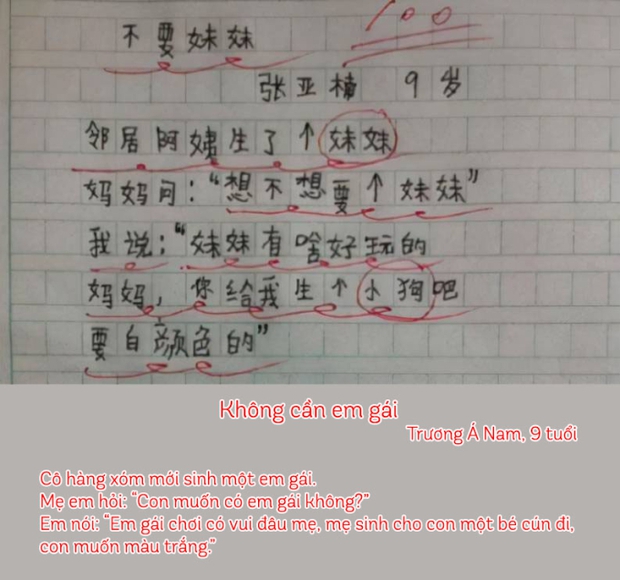 100
不要妹妹
张亚楠 9岁
邻居阿姨生了个妹妹
妈妈问:“想不想要个妹妹”
我说:“妹妹有啥好玩的
妈妈,你给我生个小狗吧
要白颜色的”
Không cần em gái
Trương Á Nam, 9 tuổi
Cô hàng xóm mới sinh một em gái.
Mẹ em hỏi: "Con muốn có em gái không?"
Em nói: "Em gái chơi có vui đâu mẹ, mẹ sinh cho con một bé cún đi,
con muốn màu trắng."